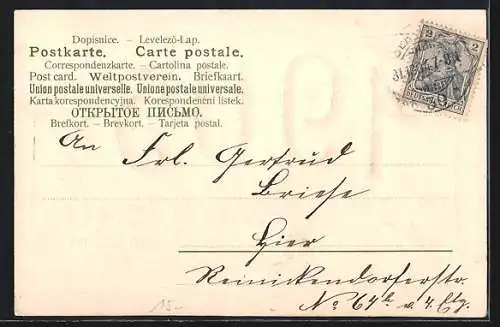 Dopisnice. – Levelező-Lap.
Postkarte. Carte postale.
Correspondenzkarte. – Cartolina postale.
Post card. Weltpostverein. Briefkaart.
Union postale universelle. Unione postale universale.
Karta korespondencyjna. Korespondenční lístek.
ОТКРЫТОЕ ПИСЬМО.
Brefkort. – Brevkort. – Tarjeta postal.
An Frl. Gertrud
Briese
Hier
Reinickendorferstr.
No 64b v. 4. Etg.
15.-
2 2